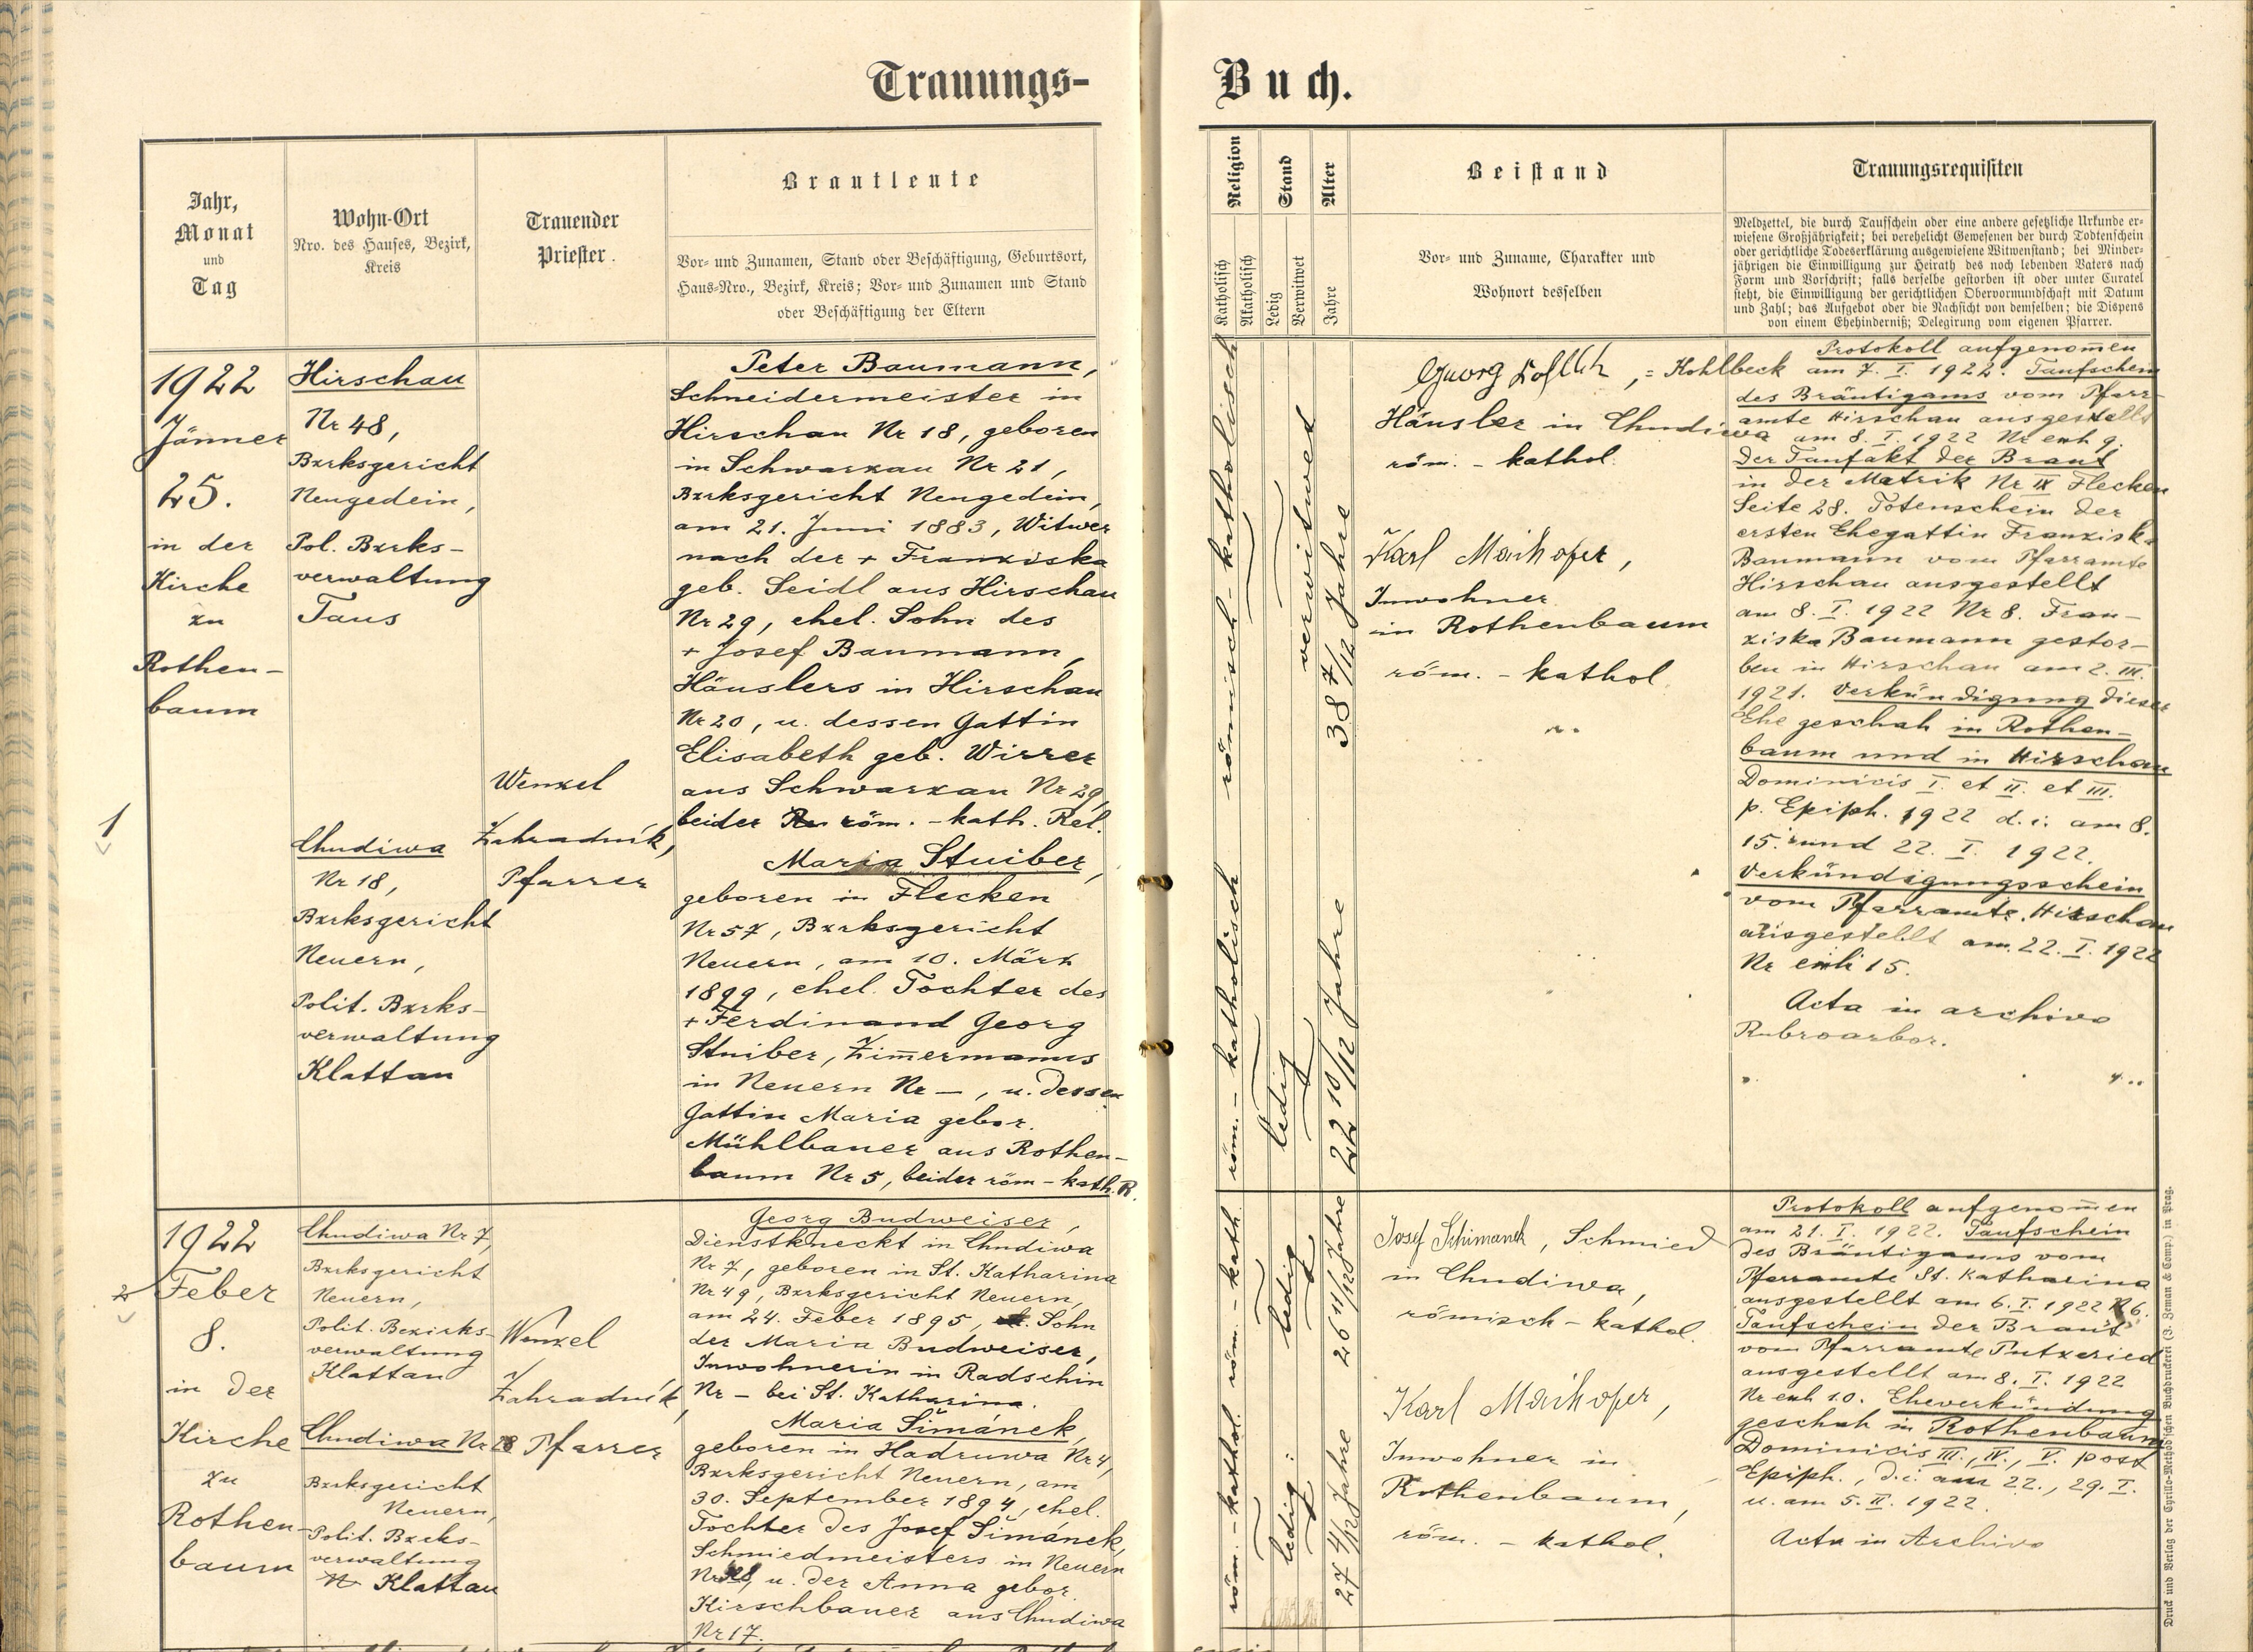 Trauungs-
Buch.
Jahr,
Monat
und
Tag
Wohn-Ort
Nro. des Hauses, Bezirk,
Kreis
Trauender
Priester.
Brautleute
Vor- und Zunamen, Stand oder Beschäftigung, Geburtsort,
Haus-Nro., Bezirk, Kreis; Vor- und Zunamen und Stand
oder Beschäftigung der Eltern
Religion
Katholisch
Akatholisch
Stand
Ledig
Verwitwet
Alter
Jahre
Beistand
Vor- und Zuname, Charakter und
Wohnort desselben
Trauungsrequisiten
Meldzettel, die durch Taufschein oder eine andere gesetzliche Urkunde er-
wiesene Großjährigkeit; bei verehelicht Gewesenen der durch Todtenschein
oder gerichtliche Todeserklärung ausgewiesene Witwenstand; bei Minder-
jährigen die Einwilligung zur Heirath des noch lebenden Vaters nach
Form und Vorschrift; falls derselbe gestorben ist oder unter Curatel
steht, die Einwilligung der gerichtlichen Obervormundschaft mit Datum
und Zahl; das Aufgebot oder die Nachsicht von demselben; die Dispens
von einem Ehehinderniß; Delegirung vom eigenen Pfarrer.
1
1922
Jänner
25.
in der
Kirche
zu
Rothen-
baum
Hirschau
Nr 48,
Bzrksgericht
Neugedein,
Pol. Bzrks-
verwaltung
Taus
Chudiwa
Nr 18,
Bzrksgericht
Neuern,
Polit. Bzrks-
verwaltung
Klattau
Wenzel
Zahradník,
Pfarrer
Peter Baumann,
Schneidermeister in
Hirschau Nr 18, geboren
in Schwarzau Nr 21,
Bzrksgericht Neugedein,
am 21. Juni 1883, Witwer
nach der + Franziska
geb. Seidl aus Hirschau
Nr 29, ehel. Sohn des
+ Josef Baumann,
Häuslers in Hirschau
Nr 20, u. dessen Gattin
Elisabeth geb. Wirrer
aus Schwarzau Nr 29,
beider röm. - kath. Rel.
Maria Stuiber,
geboren in Flecken
Nr 57, Bzrksgericht
Neuern, am 10. März
1899, ehel. Tochter des
+ Ferdinand Georg
Stuiber, Zim̄ermanns
in Neuern Nr —, u. dessen
Gattin Maria gebor.
Mühlbauer aus Rothen-
baum Nr 5, beider röm - kath. R.
römisch - katholisch
verwitwet
38 7/12 Jahre
röm. - katholisch
ledig
22 10/12 Jahre
Georg Kohlbeck, = Kohlbeck
Häusler in Chudiwa
röm. - kathol.
Karl Maihofer,
Inwohner
in Rothenbaum
röm. - kathol.
Protokoll aufgenom̄en
am 7. I. 1922. Taufschein
des Bräutigams vom Pfarr-
amte Hirschau ausgestellt
am 8. I. 1922 Nr exh 9.
Der Taufakt der Braut
in der Matrik Nr IX Flecken
Seite 28. Totenschein der
ersten Ehegattin Franziska
Baumann vom Pfarramte
Hirschau ausgestellt
am 8. I. 1922 Nr 8. Fran-
ziska Baumann gestor-
ben in Hirschau am 2. III.
1921. Verkündigung dieser
Ehe geschah in Rothen-
baum und in Hirschau
Dominicis I. et II. et III.
p. Epiph. 1922 d. i. am 8.
15. und 22. I. 1922.
Verkündigungsschein
vom Pfarramte Hirschau
ausgestellt am 22. I. 1922
Nr exh 15.
Acta in archivo
Rubroarbor.
2
1922
Feber
8.
in der
Kirche
zu
Rothen-
baum
Chudiwa Nr 7,
Bzrksgericht
Neuern,
Polit. Bezirks-
verwaltung
Klattau
Chudiwa Nr 28
Bzrksgericht
Neuern,
Polit. Bzrks-
verwaltung
Klattau
Wenzel
Zahradník,
Pfarrer
Georg Budweiser,
Dienstknecht in Chudiwa
Nr 7, geboren in St. Katharina
Nr 49, Bzrksgericht Neuern,
am 24. Feber 1895, Sohn
der Maria Budweiser,
Inwohnerin in Radschin
Nr — bei St. Katharina.
Maria Šimánek,
geboren in Hadruwa Nr 4,
Bzrksgericht Neuern, am
30. September 1894, ehel.
Tochter des Josef Šimánek,
Schmiedmeisters in Neuern
Nr u. der Anna gebor.
Kirschbauer aus Chudiwa
Nr 17.
röm. - kath
ledig
26 11/12 Jahre
röm. - kathol.
ledig
27 4/12 Jahre
Josef Schimanek, Schmied
in Chudiwa,
römisch - kathol.
Karl Maihofer,
Inwohner in
Rothenbaum,
röm. - kathol.
Protokoll aufgenom̄en
am 21. I. 1922. Taufschein
des Bräutigams vom
Pfarramte St. Katharina
ausgestellt am 6. I. 1922 N 6.
Taufschein der Braut
vom Pfarramte Putzeried
ausgestellt am 8. I. 1922
Nr exh 10. Eheverkündung
geschah in Rothenbaum
Dominicis III., IV., V. post
Epiph., d. i. am 22., 29. I.
u. am 5. II. 1922.
Acta in Archivo
Druck und Verlag der Cyrillo-Method'schen Buchdruckerei (J. Zeman & Comp.) in Prag.